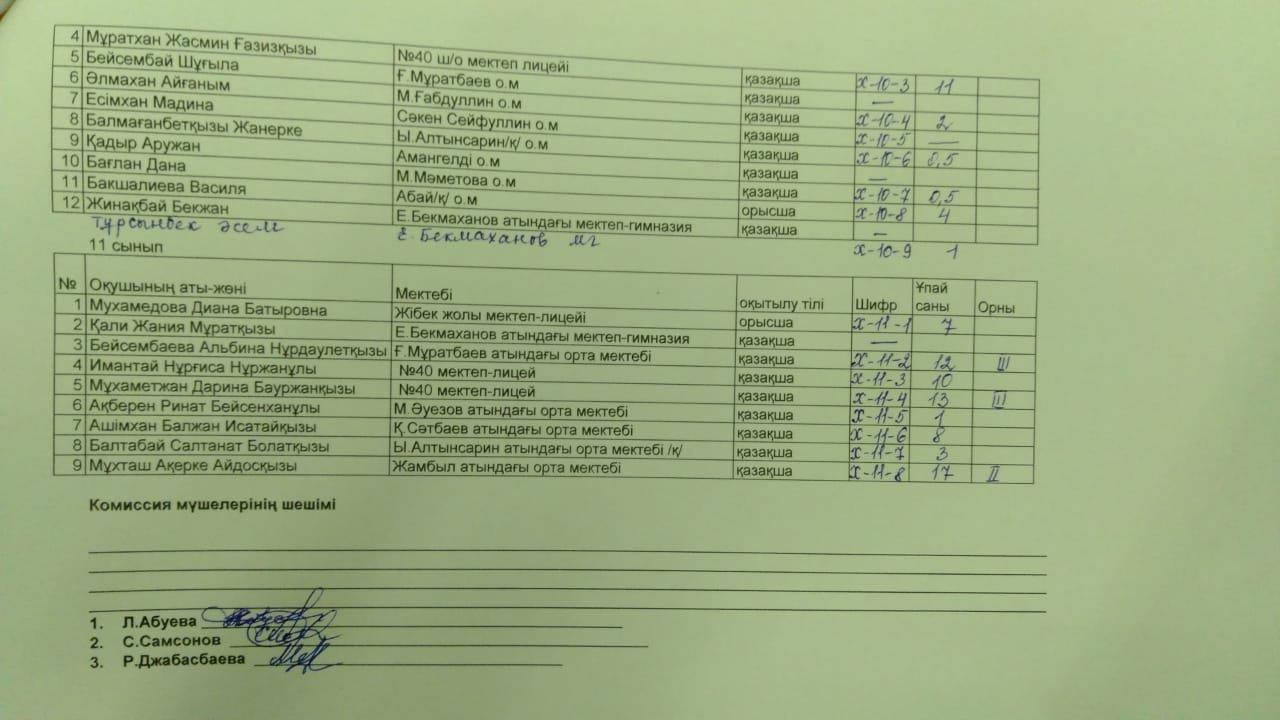 4 Мұратхан Жасмин Ғазизқызы №40 ш/о мектеп лицейі қазақша х-10-3 11
5 Бейсембай Шұғыла Ғ.Мұратбаев о.м қазақша —
6 Әлмахан Айғаным М.Ғабдуллин о.м қазақша х-10-4 2
7 Есімхан Мадина Сәкен Сейфуллин о.м қазақша х-10-5 —
8 Балмағанбетқызы Жанерке Ы.Алтынсарин/қ/ о.м қазақша х-10-6 0,5
9 Қадыр Аружан Амангелді о.м қазақша —
10 Бағлан Дана М.Мәметова о.м қазақша х-10-7 0,5
11 Бакшалиева Василя Абай/қ/ о.м орысша х-10-8 4
12 Жинақбай Бекжан Е.Бекмаханов атындағы мектеп-гимназия қазақша —
Тұрсынбек Әсем Е.Бекмаханов мг х-10-9 1
11 сынып
№ Оқушының аты-жөні Мектебі оқытылу тілі Шифр Ұпай саны Орны
1 Мухамедова Диана Батыровна Жібек жолы мектеп-лицейі орысша х-11-1 7
2 Қали Жания Мұратқызы Е.Бекмаханов атындағы мектеп-гимназия қазақша —
3 Бейсембаева Альбина Нұрдаулетқызы Ғ.Мұратбаев атындағы орта мектебі қазақша х-11-2 12 III
4 Имантай Нұрғиса Нұржанұлы №40 мектеп-лицей қазақша х-11-3 10
5 Мұхаметжан Дарина Бауржанқызы №40 мектеп-лицей қазақша х-11-4 13 III
6 Ақберен Ринат Бейсенханұлы М.Әуезов атындағы орта мектебі қазақша х-11-5 1
7 Ашімхан Балжан Исатайқызы Қ.Сәтбаев атындағы орта мектебі қазақша х-11-6 8
8 Балтабай Салтанат Болатқызы Ы.Алтынсарин атындағы орта мектебі /қ/ қазақша х-11-7 3
9 Мұхташ Ақерке Айдосқызы Жамбыл атындағы орта мектебі қазақша х-11-8 17 II
Комиссия мүшелерінің шешімі
1. Л.Абуева
2. С.Самсонов
3. Р.Джабасбаева